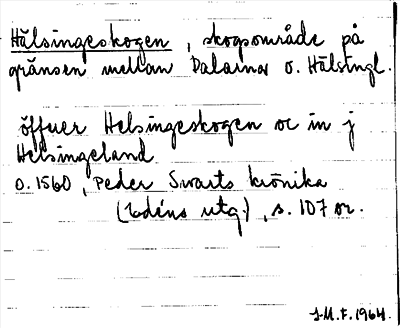 Hälsingeskogen, skogsområde på
gränsen mellan Dalarna o. Hälsingl.
öffuer Helsingeskogen oc in j
Helsingeland
o. 1560, Peder Swarts krönika
(Edéns utg.), s. 107 or.
J.M.F. 1964.